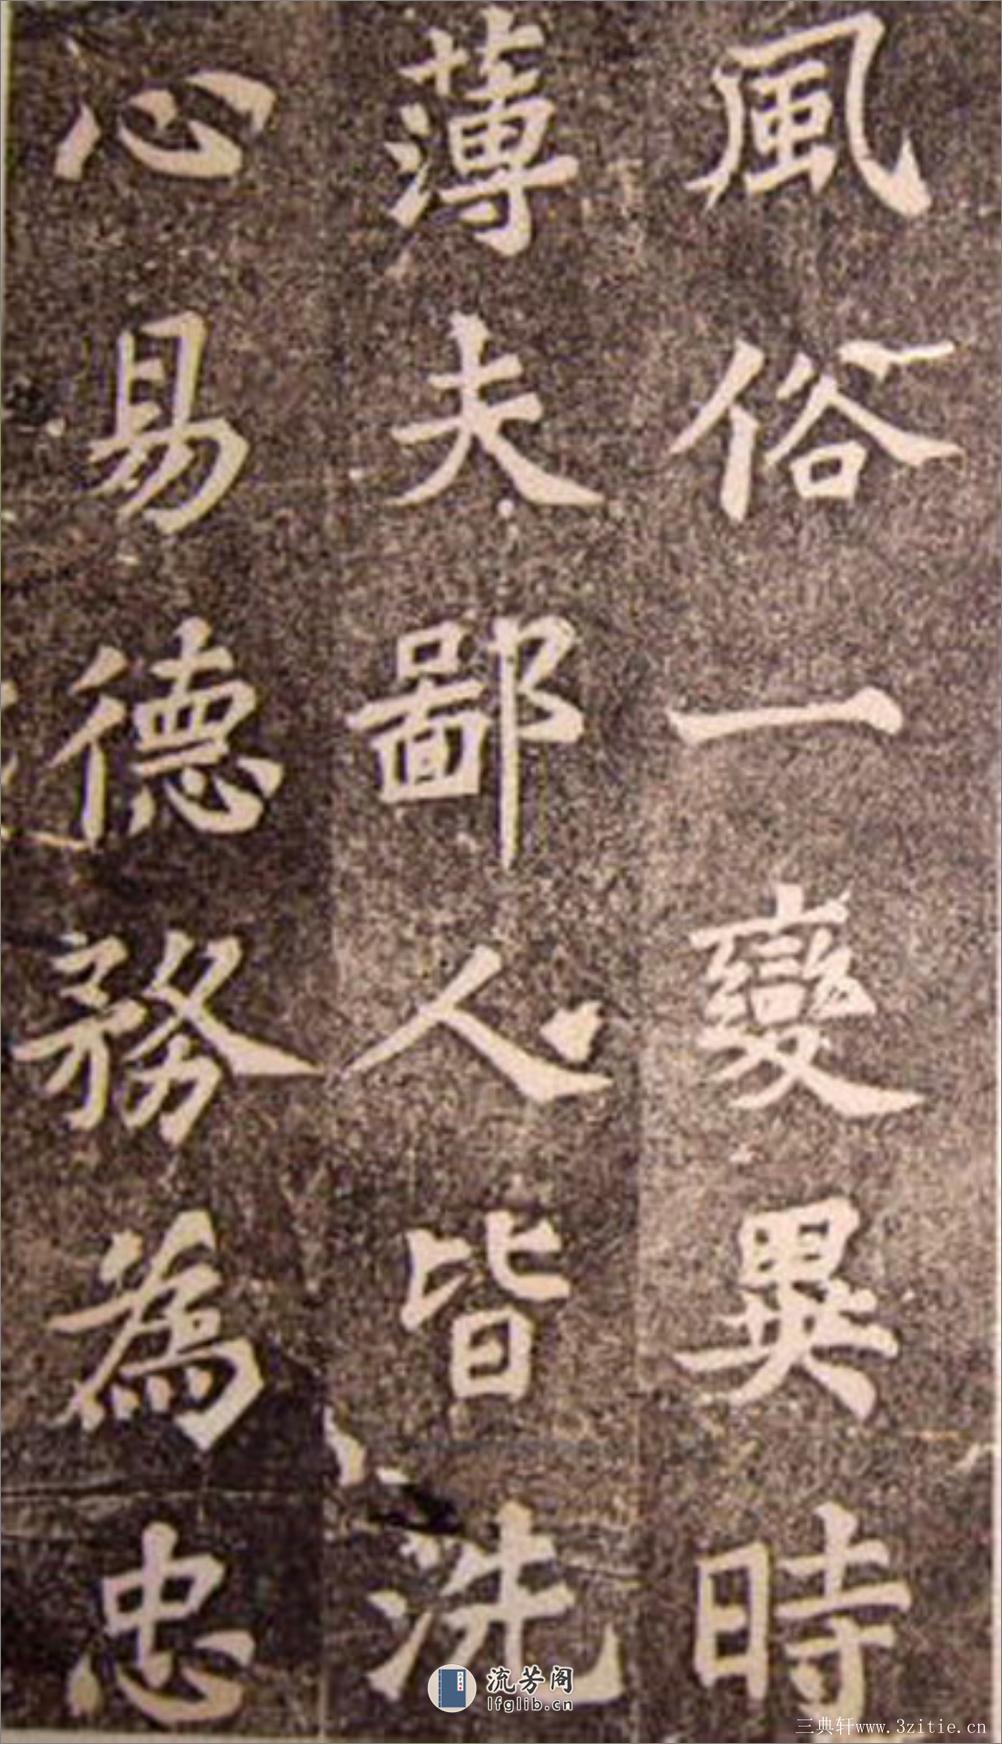 風俗一變異時
薄夫鄙人皆洗
心易德務為忠
流芳阁
lfglib.cn
三典轩www.3zitie.cn